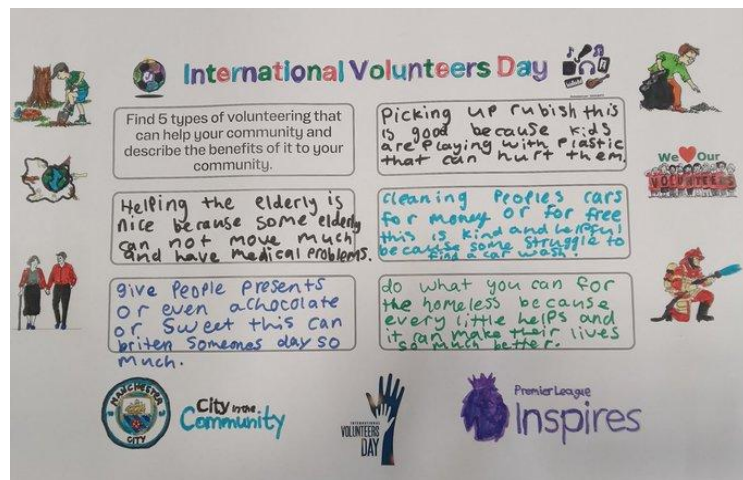 International Volunteers Day
Find 5 types of volunteering that
can help your community and
describe the benefits of it to your
community.
Picking up rubish this
is good because kids
are playing with plastic
that can hurt them.
Helping the elderly is
nice because some elderly
can not move much
and have medical problems.
cleaning Peoples cars
for money or for free
this is kind and helpful
because some struggle to
find a car wash.
give People presents
or even a chocolate
or sweet this can
briten someones day so
much.
do what you can for
the homeless because
every little helps and
it can make their lives
so much better.
We Our
VOLUNTEERS
MANCHESTER
CITY
City in the
Community
INTERNATIONAL
VOLUNTEERS
DAY
Premier League
Inspires